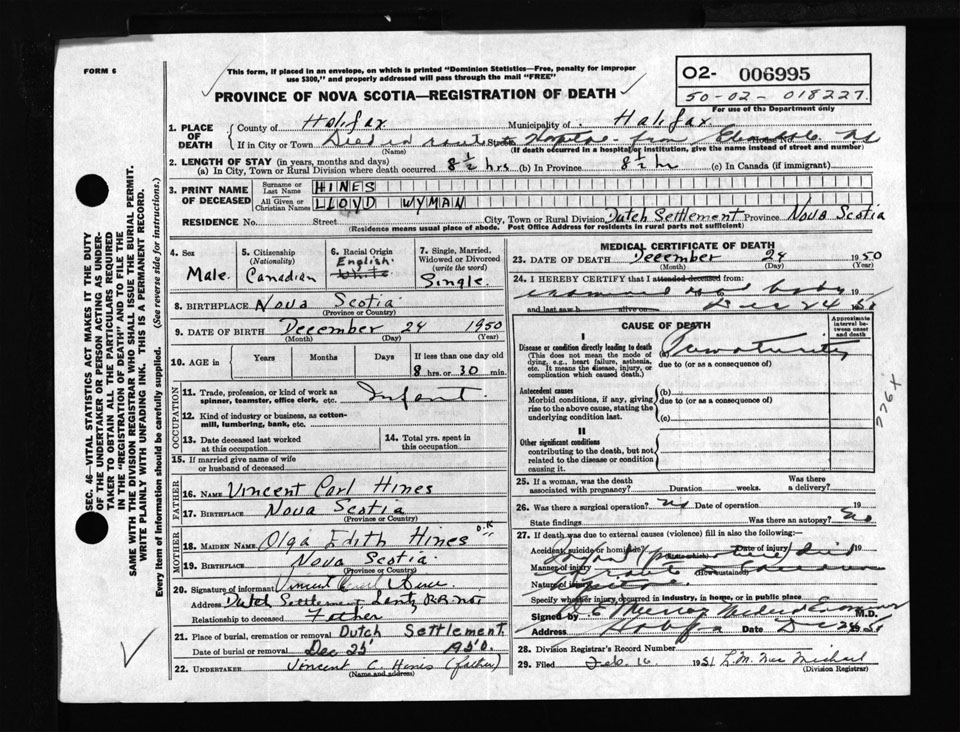 FORM 6
This form, if placed in an envelope, on which is printed "Dominion Statistics—Free, penalty for improper
use $300," and properly addressed will pass through the mail "FREE"
PROVINCE OF NOVA SCOTIA—REGISTRATION OF DEATH
O2- 006995
50-02-018227.
For use of the Department only
1. PLACE OF DEATH
County of Halifax Municipality of Halifax
If in City or Town Died Street Hospital from House No. N.S.
(Name) (If death occurred in a hospital or institution, give the name instead of street and number)
2. LENGTH OF STAY (in years, months and days)
(a) In City, Town or Rural Division where death occurred 8 ½ hrs (b) In Province 8 ½ hr (c) In Canada (if immigrant)
3. PRINT NAME OF DECEASED
Surname or Last Name HINES
All Given or Christian Names LLOYD WYMAN
RESIDENCE No. Street City, Town or Rural Division Dutch Settlement Province Nova Scotia
(Residence means usual place of abode. Post Office Address for residents in rural parts not sufficient)
4. Sex
Male.
5. Citizenship
(Nationality)
Canadian
6. Racial Origin
English.
White
7. Single, Married, Widowed or Divorced
(write the word)
Single.
8. BIRTHPLACE Nova Scotia
(Province or Country)
9. DATE OF BIRTH December 24 1950
(Month) (Day) (Year)
10. AGE in Years Months Days If less than one day old
8 hrs. or 30 min.
OCCUPATION
11. Trade, profession, or kind of work as
spinner, teamster, office clerk, etc. Infant.
12. Kind of industry or business, as cotton-
mill, lumbering, bank, etc.
13. Date deceased last worked
at this occupation
14. Total yrs. spent in
this occupation
15. If married give name of wife
or husband of deceased
FATHER
16. NAME Vincent Carl Hines
17. BIRTHPLACE Nova Scotia
(Province or Country)
MOTHER
18. MAIDEN NAME Olga Edith Hines O.K
19. BIRTHPLACE Nova Scotia
(Province or Country)
20. Signature of informant Vincent Hines
Address Dutch Settlement Lantz RR No 1
Relationship to deceased Father
21. Place of burial, cremation or removal Dutch Settlement.
Date of burial or removal Dec 25 1950.
22. UNDERTAKER Vincent C. Hines (father)
(Name and address)
MEDICAL CERTIFICATE OF DEATH
23. DATE OF DEATH December 24 1950
(Month) (Day) (Year)
24. I HEREBY CERTIFY that I attended deceased from:
examined body 19
and last saw h alive on Dec 24 50
CAUSE OF DEATH
Approximate interval between onset and death
I
Disease or condition directly leading to death
(This does not mean the mode of
dying, e.g., heart failure, asthenia,
etc. It means the disease, injury, or
complication which caused death.)
(a) Prematurity
due to (or as a consequence of)
Antecedent causes
Morbid conditions, if any, giving
rise to the above cause, stating the
underlying condition last.
(b)
due to (or as a consequence of)
(c)
II
Other significant conditions
contributing to the death, but not
related to the disease or condition
causing it.
776+
25. If a woman, was the death
associated with pregnancy? Duration weeks. Was there
a delivery?
26. Was there a surgical operation? no Date of operation 19
State findings Was there an autopsy? no
27. If death was due to external causes (violence) fill in also the following:—
Accident, suicide or homicide? Date of injury 19
Manner of injury (How sustained)
Nature of injury
Specify whether injury occurred in industry, in home, or in public place
Signed by Murray Medical Examiner M.D.
Address Halifax Date Dec 26 50
28. Division Registrar's Record Number
29. Filed Feb. 16 1951 L.M. Mac Michael
(Division Registrar)
SEC. 46—VITAL STATISTICS ACT MAKES IT THE DUTY
OF THE UNDERTAKER OR PERSON ACTING AS UNDER-
TAKER TO OBTAIN ALL THE PARTICULARS REQUIRED
IN THE "REGISTRATION OF DEATH" AND TO FILE THE
SAME WITH THE DIVISION REGISTRAR WHO SHALL ISSUE THE BURIAL PERMIT.
WRITE PLAINLY WITH UNFADING INK. THIS IS A PERMANENT RECORD.
Every item of Information should be carefully supplied. (See reverse side for instructions.)